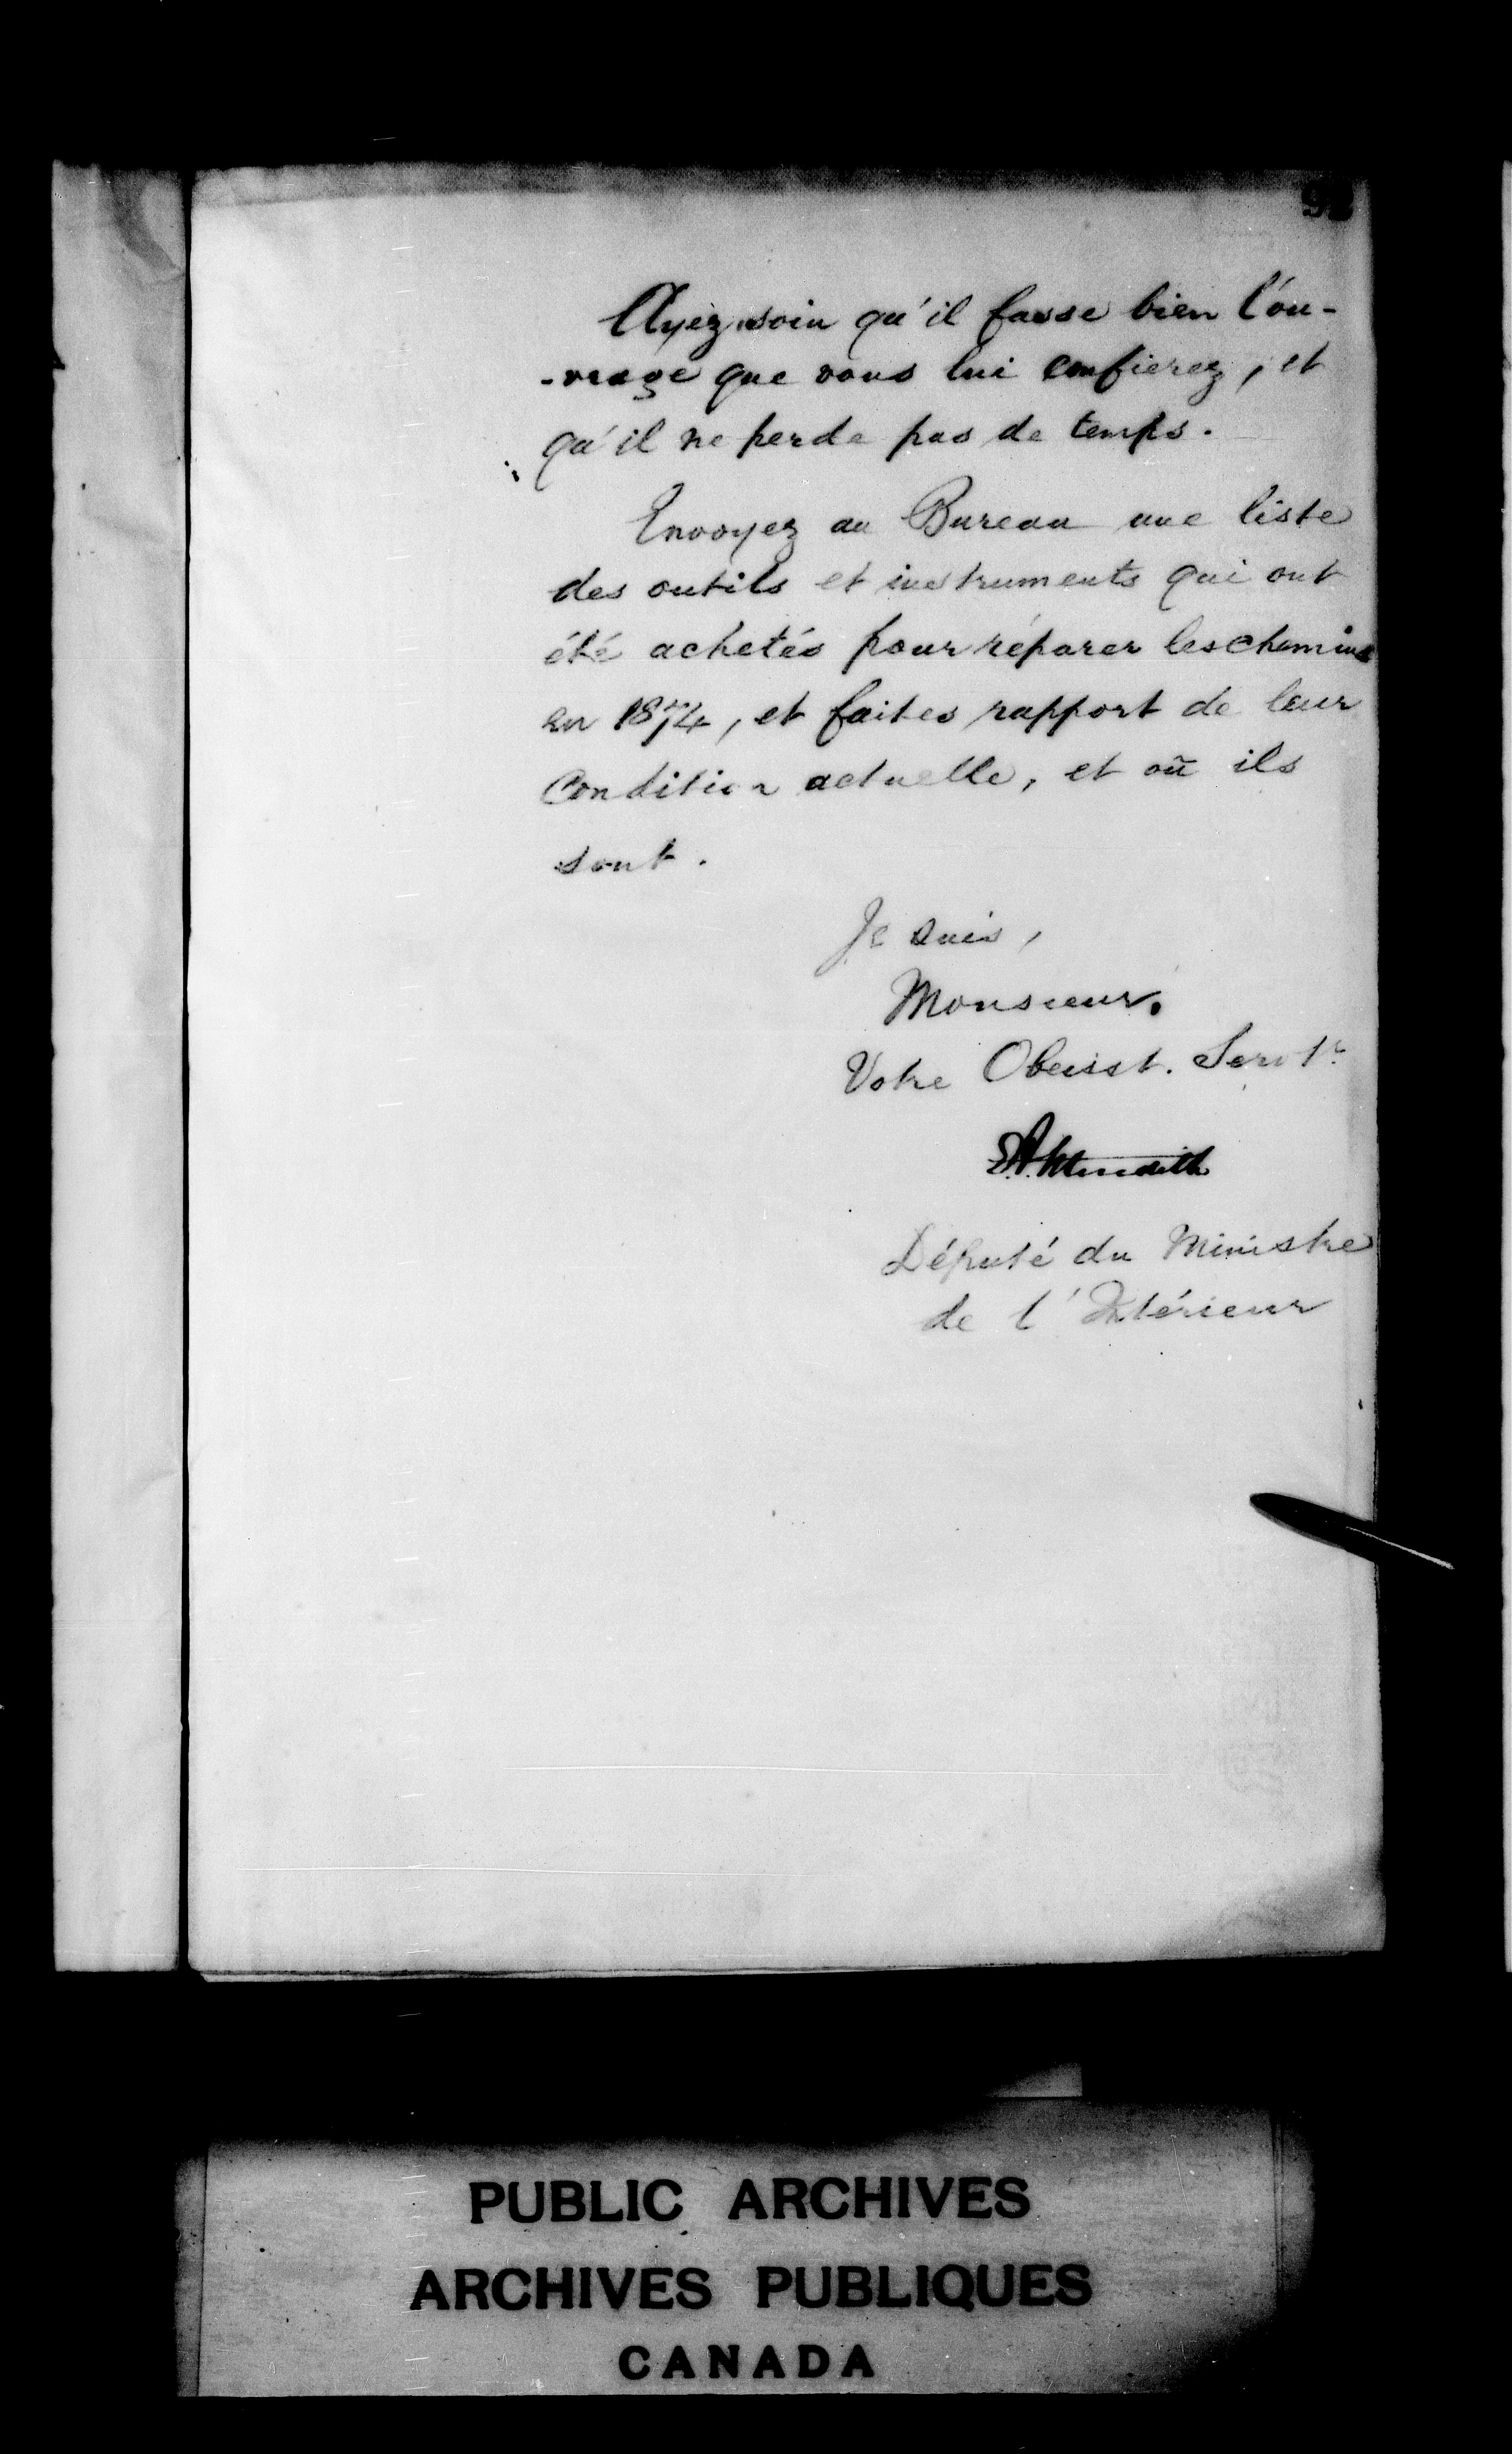 Ayez soin qu'il fasse bien l'ou-
-vrage que vous lui confierez, et
qu'il ne perde pas de temps.
Envoyez au Bureau une liste
des outils et instruments qui ont
été achetés pour réparer les chemins
en 1874, et faites rapport de leur
condition actuelle, et où ils
sont.
Je suis,
Monsieur,
Votre Obeisst. Servtr
E.A. Meredith
Député du Ministre
de l'Intérieur
PUBLIC ARCHIVES
ARCHIVES PUBLIQUES
CANADA